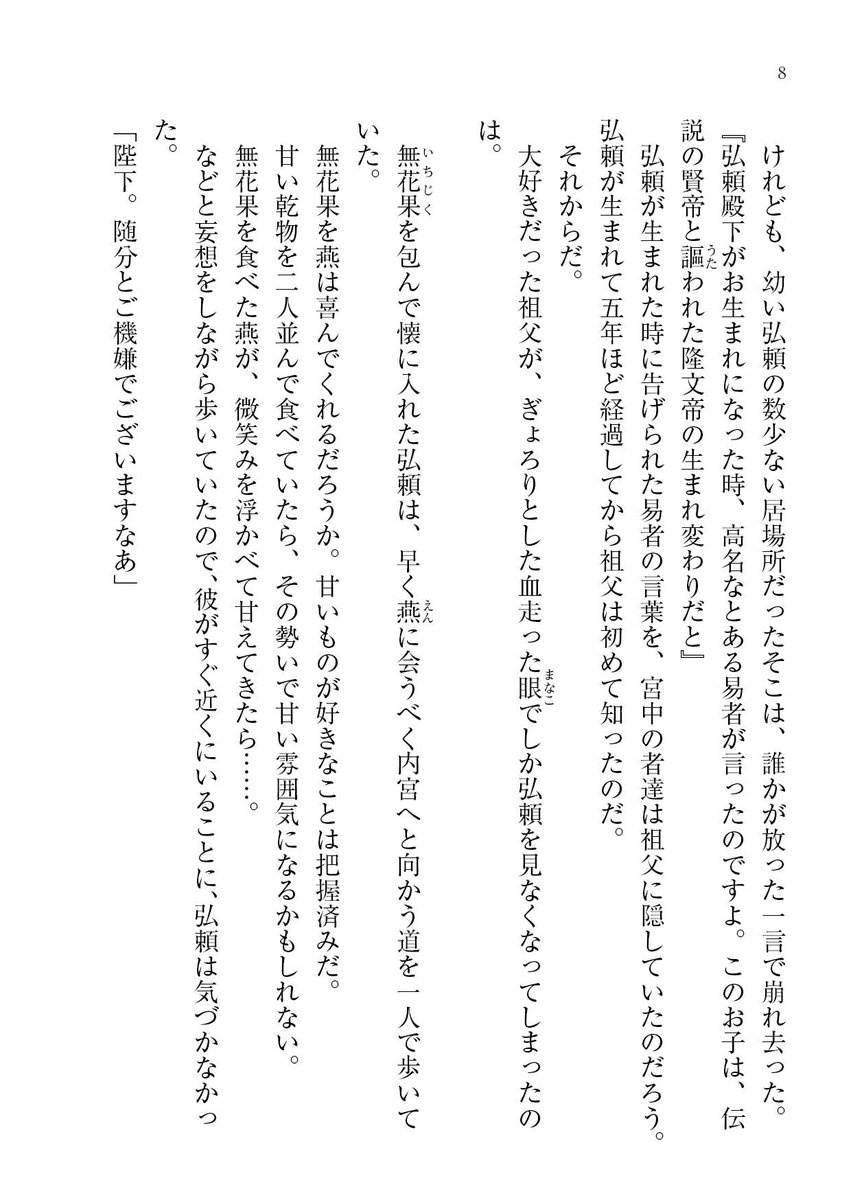 8
けれども、幼い弘頼の数少ない居場所だったそこは、誰かが放った一言で崩れ去った。
『弘頼殿下がお生まれになった時、高名なとある易者が言ったのですよ。このお子は、伝
説の賢帝と謳われた隆文帝の生まれ変わりだと』
うた
弘頼が生まれた時に告げられた易者の言葉を、宮中の者達は祖父に隠していたのだろう。
弘頼が生まれて五年ほど経過してから祖父は初めて知ったのだ。
それからだ。
大好きだった祖父が、ぎょろりとした血走った眼でしか弘頼を見なくなってしまったの
まなこ
は。
無花果を包んで懐に入れた弘頼は、早く燕に会うべく内宮へと向かう道を一人で歩いて
いちじく
えん
いた。
無花果を燕は喜んでくれるだろうか。甘いものが好きなことは把握済みだ。
甘い乾物を二人並んで食べていたら、その勢いで甘い雰囲気になるかもしれない。
無花果を食べた燕が、微笑みを浮かべて甘えてきたら……。
などと妄想をしながら歩いていたので、彼がすぐ近くにいることに、弘頼は気づかなかっ
た。
「陛下。随分とご機嫌でございますなあ」